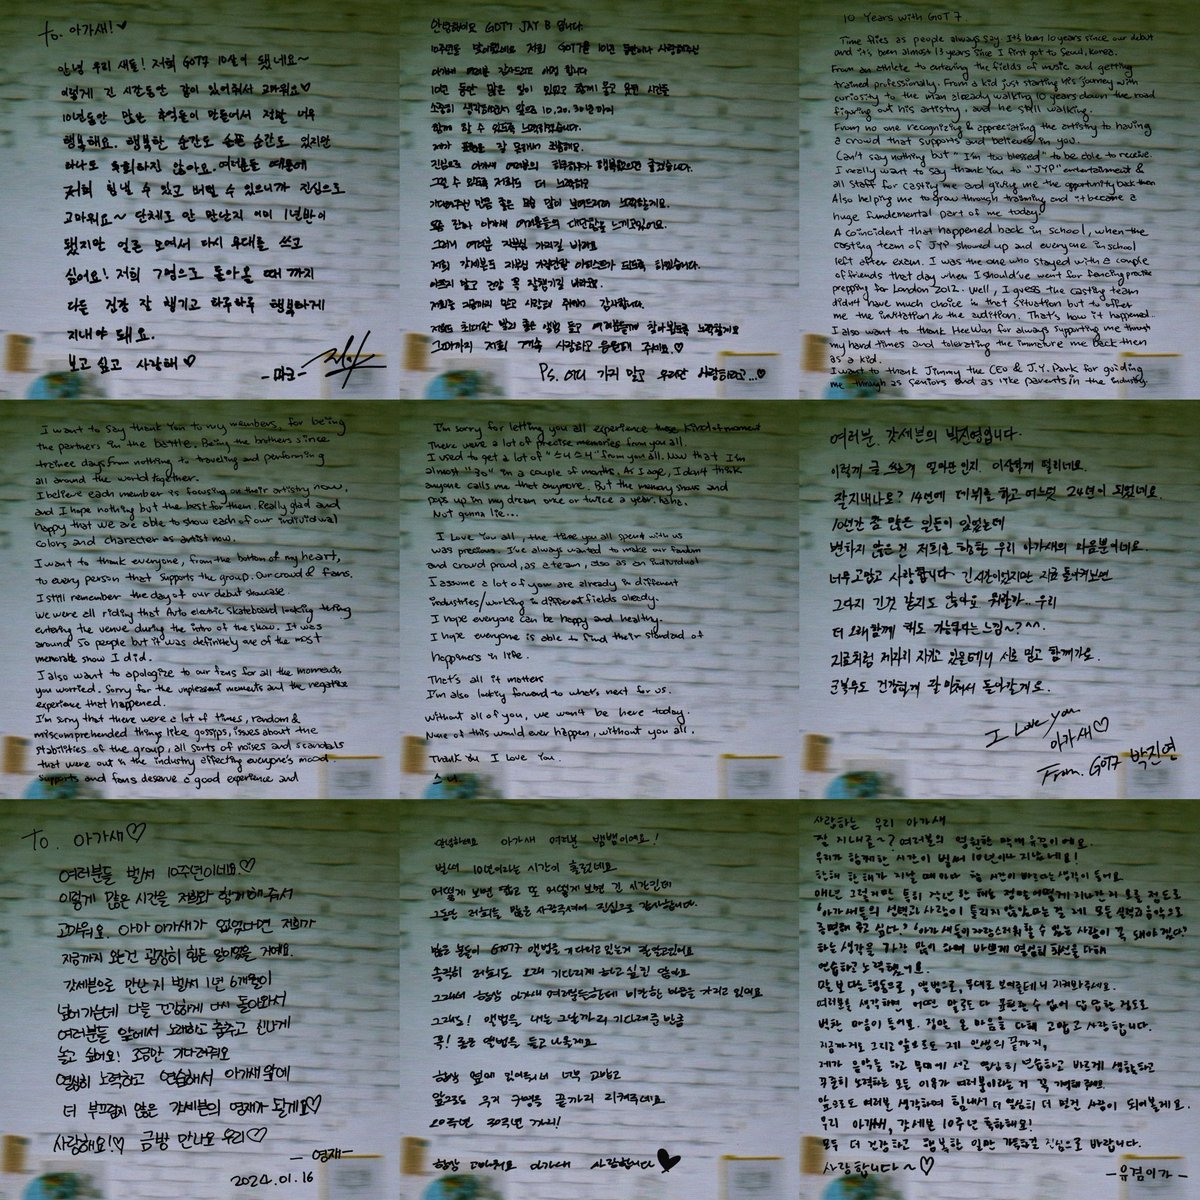 To. 아가새!♡
안녕 우리 새들! 저희 GOT7 10살이 됐네요~
이렇게 긴 시간동안 같이 있어줘서 고마워요♡
10년동안 많은 추억들이 만들어서 정말 너무
행복해요. 행복한 순간도 슬픈 순간도 있지만
하나도 후회하지 않아요. 여러분들 때문에
저희 힘낼 수 있고 버틸 수 있으니까 진심으로
고마워요~ 단체로 안 만난지 이미 1년반이
됐지만 얼른 모여서 다시 무대를 쓰고
싶어요! 저희 7명으로 돌아올 때까지
다들 건강 잘 챙기고 하루하루 행복하게
지내야 돼요.
보고 싶고 사랑해♡
-마크-
안녕하세요 GOT7 JAY B 입니다.
10주년을 맞이했네요 저희 GOT7을 10년 동안이나 사랑해주신
아가새 여러분 감사드리고 애정 합니다
10년 동안 많은 일이 있었고 함께 웃고 울던 시간을
소중히 생각하면서 앞으로 10, 20, 30년까지
함께 할 수 있도록 노력하겠습니다.
제가 표현을 잘 못해서 죄송해요.
진심으로 아가새 여러분의 하루하루가 행복했으면 좋겠습니다.
그럴 수 있도록 저희도 더 노력하고
기다려주신 만큼 좋은 모습 많이 보여드리려 노력할게요.
그러니 여러분 지켜봐 주시길 바래요
아프지 말고 건강 꼭 잘챙기길 바라요.
저희를 지금까지 믿고 사랑해 주셔서 감사합니다.
저도 최대한 빨리 좋은 앨범 들고 여러분들께 찾아뵙도록 노력할게요
그때까지 저희 계속 사랑하고 응원해 주세요.♡
Ps. 어디 가지 말고 우리만 사랑하라고...♡
10 Years with GOT7.
Time flies as people always say. It's been 10 years since our debut
and it's been almost 13 years since I first got to Seoul, Korea.
From an athlete to entering the fields of music and getting
trained professionally. From a kid just starting his journey with
curiosity to the man already walking 10 years down the road
figuring out his artistry, and he still walking.
From no one recognizing & appreciating the artistry to having
a crowd that supports and believes in you.
Can't say nothing but "I'm too blessed" to be able to receive.
I really want to say thank You to "JYP" entertainment &
all staff for casting me and giving me the opportunity back then
Also helping me to grow through training and it became a
huge fundemental part of me today.
A coincident that happened back in school, when the
casting team of JYP showed up and everyone in school
left after exam. I was the one who stayed with a couple
of friends that day when I should've went for fencing practice
prepping for London 2012. Well, I guess the casting team
didn't have much choice in that situation but to offer
me the invitation to the audition. That's how it happened..
I also want to thank HeeWon for always supporting me thrust
my hard times and tolerating the immature me back then
as a kid.
I want to thank Jimmy the CEO & J.Y. Park for guiding
me through as seniors and as like parents in the industry.
I want to say thank You to my members, for being
the partners in the battle. Being the brothers since
trainee days from nothing to traveling and performing
all around the world together.
I believe each member is focusing on their artistry now,
and I hope nothing but the best for them. Really glad and
happy that we are able to show each of our individual
colors and character as artist now.
I want to thank everyone, from the bottom of my heart,
to every person that supports the group. Our crowd & fans.
I still remember the day of our debut showcase.
We were all riding that Auto electric skateboard looking thing
entering the venue during the intro of the show. It was
around 50 people but it was definitely one of the most
memorable show I did.
I also want to apologize to our fans for all the moments
you worried. Sorry for the unpleasent moments and the negative
experience that happened.
I'm sorry that there were a lot of times, random &
miscomprehended things like gossips, issues about the
stabilities of the group, all sorts of noises and scandals
that were out in the industry effecting everyone's mood.
Supports and fans deserve a good experience and
I'm sorry for letting you all experience those kind of moment
There were a lot of precise memories from you all.
I used to get a lot of "스니스니" from you all. Now that I'm
almost "30" in a couple of months. As I age, I don't think
anyone calls me that anymore. But the memory shows and
pops up in my dream once or twice a year. haha.
Not gunna lie...
I Love You all, the time you all spent with us
was precious. I've always wanted to make our fandom
and crowd proud, as a team, also as an individual
I assume a lot of you are already in different
industries/working in different fields already.
I hope everyone can be happy and healthy.
I hope everyone is able to find their standard of
happiness in life.
That's all it matters
I'm also looking forward to what's next for us.
Without all of you, we won't be here today.
None of this would ever happen, without you all.
Thank You I Love You.
스니.
여러분. 갓세븐의 박진영입니다.
이렇게 글 쓰는게 얼마만인지. 이상하게 떨리네요.
잘지내나요? 14년에 데뷔를 하고 어느덧 24년이 되었네요.
10년간 참 많은 일들이 있었는데
변하지 않은건 저희와 함께한 우리 아가새의 마음뿐이네요.
너무 고맙고 사랑합니다 긴 시간이었지만 지금 돌이켜보면
그다지 긴것 같지도 않아요 뭐랄까.. 우리
더 오래 함께 해도 가능하다는 느낌~?^^.
지금처럼 제자리 지키고 있을테니 서로 믿고 함께가요.
군복무도 건강하게 잘 마쳐서 돌아갈게요.
I Love you
아가새♡
From. GOT7 박진영
To. 아가새♡
여러분들 벌써 10주년이네요♡
이렇게 많은 시간을 저희와 함께해줘서
고마워요. 아마 아가새가 없었다면 저희가
지금까지 오는건 굉장히 힘든 일이였을 거예요.
갓세븐으로 만난지 벌써 1년 6개월이
넘어가는데 다들 건강하게 다시 돌아와서
여러분들 앞에서 노래하고 춤추고 신나게
놀고 싶어요! 조금만 기다려줘요
열심히 노력하고 연습해서 아가새앞에
더 부끄럽지 않은 갓세븐의 영재가 될게요♡
사랑해요!♡ 금방 만나요 우리♡
-영재-
2024.01.16
안녕하세요 아가새 여러분 뱀뱀이에요!
벌써 10년이라는 시간이 흘렀네요
어떻게 보면 짧고 또 어떻게 보면 긴 시간인데
그동안 저희를 많은 사랑주셔서 진심으로 감사합니다.
많은 분들이 GOT7 앨범을 기다리고 있는거 잘 알고있어요
솔직히 저희도 오래 기다리게 하고 싶진 않아요
그래서 항상 아가새 여러분들한테 미안한 마음을 가지고 있어요
그래도! 앨범을 내는 그날까지 기다려준 만큼
꼭! 좋은 앨범을 들고 나올게요
항상 옆에 있어줘서 너무 고맙고
앞으로도 우리 7명을 끝까지 지켜주세요
20주년 30주년 가자!
항상 고마워요 아가새 사랑합니다♥
사랑하는 우리 아가새
잘 지내죠~? 여러분의 영원한 막내 유겸이에요.
우리가 함께한 시간이 벌써 10년이나 지났네요!
한해 한해가 지날 때마다 참 시간이 빠르다는 생각이 들어요.
매년 그렇지만 특히 작년 한 해는 정말 어떻게 지나간지 모를 정도로
'아가새들의 선택과 사랑이 틀리지 않았다는 걸 제 모든 실력과 음악으로
증명해 주고 싶다.' '아가새들이 자랑스러워 할 수 있는 사람이 꼭 돼야겠다'
하는 생각을 가장 많이 하며 바쁘게 열심히 최선을 다해
연습하고 노력했어요.
말 보다는 행동으로, 앨범으로, 무대로 보여줄테니 지켜봐주세요.
여러분을 생각하면 어떤 말로도 다 표현할 수 없어 답답할 정도로
벅찬 마음이 들어요. 정말 온 마음을 다해 고맙고 사랑합니다.
지금까지도 그리고 앞으로도 제 인생의 끝까지,
제가 음악을 하고 무대에 서고 열심히 연습하고 바르게 생활하고
꾸준히 노력하는 모든 이유가 여러분이라는 거 꼭 기억해주세요.
앞으로도 여러분 생각하며 힘내서 더 열심히 더 멋진 사람이 되어볼게요.
우리 아가새, 갓세븐 10주년 축하해요!
모두 더 건강하고 행복한 일만 가득하길 진심으로 바랍니다.
사랑합니다~♡
-유겸이가-